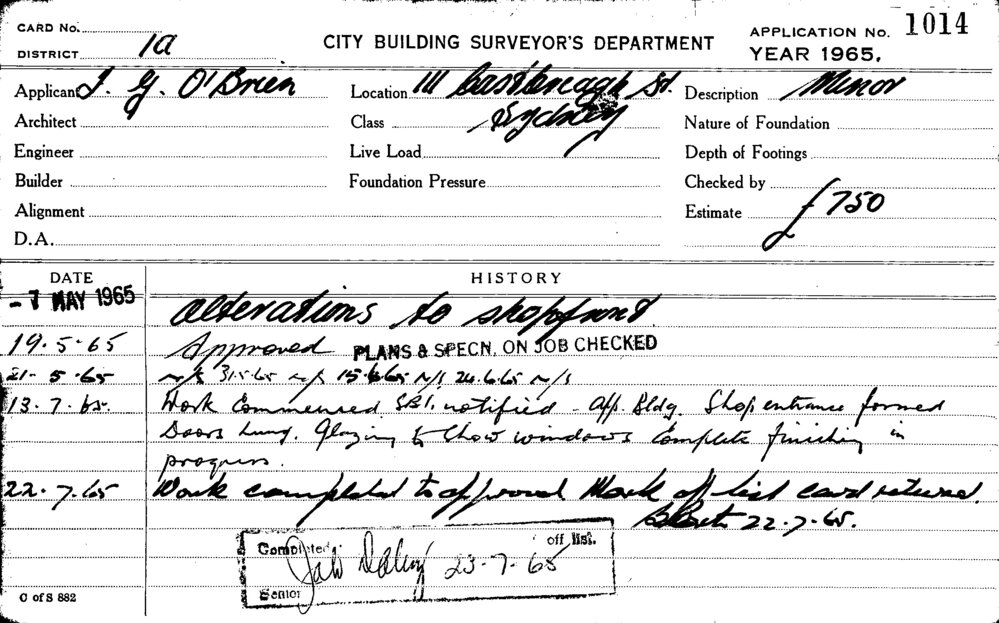 CARD No.
DISTRICT 1a
CITY BUILDING SURVEYOR'S DEPARTMENT
APPLICATION No. 1014
YEAR 1965.
Applicant J. G. O'Brien
Location 111 Castlereagh St.
Sydney
Description Minor
Architect
Class
Nature of Foundation
Engineer
Live Load
Depth of Footings
Builder
Foundation Pressure
Checked by
Alignment
Estimate £750
D.A.
DATE HISTORY
- 7 MAY 1965 Alterations to shopfront
19.5.65 Approved PLANS & SPECN. ON JOB CHECKED
21.5.65 n/s 31.5.65 n/s 15.6.65 n/s 24.6.65 n/s
13.7.65. Work Commenced. notified - App. Bldg. Shop entrance formed
Doors hung. Glazing to Show windows Complete finishing in
progress.
22.7.65 Work completed to approval Mark off list card returned.
22.7.65.
Completed off list.
23-7-65
Senior
C of S 882